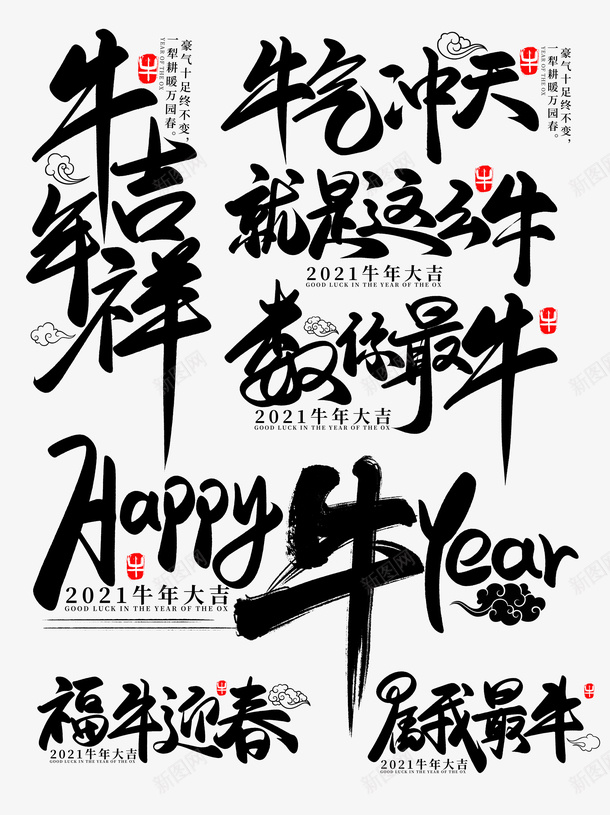 牛年吉祥
牛
豪气十足终不变，
一犁耕暖万园春。
YEAR OF THE OX
牛气冲天
牛
豪气十足终不变，
一犁耕暖万园春。
YEAR OF THE OX
就是这么牛
牛
2021牛年大吉
GOOD LUCK IN THE YEAR OF THE OX
数你最牛
牛
2021牛年大吉
GOOD LUCK IN THE YEAR OF THE OX
Happy牛Year
牛
2021牛年大吉
GOOD LUCK IN THE YEAR OF THE OX
福牛迎春
牛
2021牛年大吉
GOOD LUCK IN THE YEAR OF THE OX
属我最牛
牛
2021牛年大吉
GOOD LUCK IN THE YEAR OF THE OX